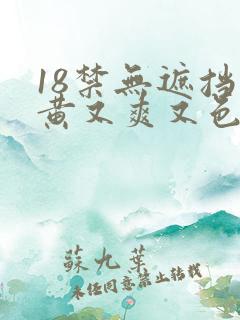 18禁無遮挡
黄又爽又色
蘇九葉
未经同意禁止转载